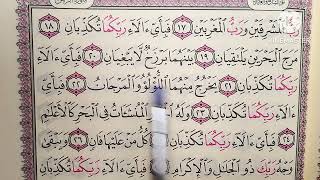 رَبُّ الْمَشْرِقَيْنِ وَرَبُّ الْمَغْرِبَيْنِ ١٧ فَبِأَيِّ ءَالَآءِ رَبِّكُمَا تُكَذِّبَانِ ١٨
مَرَجَ الْبَحْرَيْنِ يَلْتَقِيَانِ ١٩ بَيْنَهُمَا بَرْزَخٌ لَا يَبْغِيَانِ ٢٠ فَبِأَيِّ
ءَالَآءِ رَبِّكُمَا تُكَذِّبَانِ ٢١ يَخْرُجُ مِنْهُمَا اللُّؤْلُؤُ وَالْمَرْجَانُ ٢٢ فَبِأَيِّ
ءَالَآءِ رَبِّكُمَا تُكَذِّبَانِ ٢٣ وَلَهُ الْجَوَارِ الْمُنْشَآتُ فِي الْبَحْرِ كَالْأَعْلَامِ
٢٤ فَبِأَيِّ ءَالَآءِ رَبِّكُمَا تُكَذِّبَانِ ٢٥ كُلُّ مَنْ عَلَيْهَا فَانٍ ٢٦ وَيَبْقَىٰ
وَجْهُ رَبِّكَ ذُو الْجَلَالِ وَالْإِكْرَامِ ٢٧ فَبِأَيِّ ءَالَآءِ رَبِّكُمَا تُكَذِّبَانِ